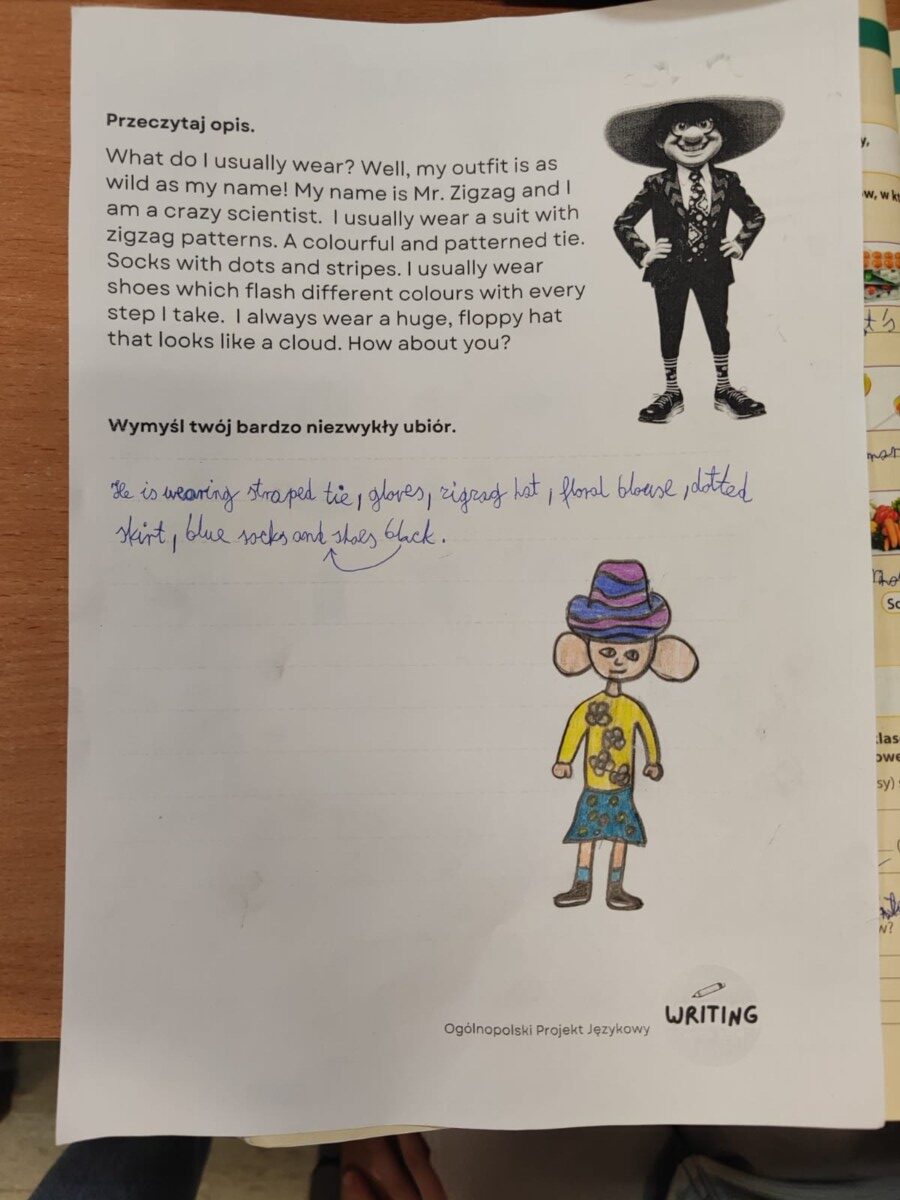 Przeczytaj opis.
What do I usually wear? Well, my outfit is as
wild as my name! My name is Mr. Zigzag and I
am a crazy scientist. I usually wear a suit with
zigzag patterns. A colourful and patterned tie.
Socks with dots and stripes. I usually wear
shoes which flash different colours with every
step I take. I always wear a huge, floppy hat
that looks like a cloud. How about you?
Wymyśl twój bardzo niezwykły ubiór.
He is wearing straped tie, gloves, zigzag hat, floral blouse, dotted
skirt, blue socks and shoes black.
Ogólnopolski Projekt Językowy
WRITING